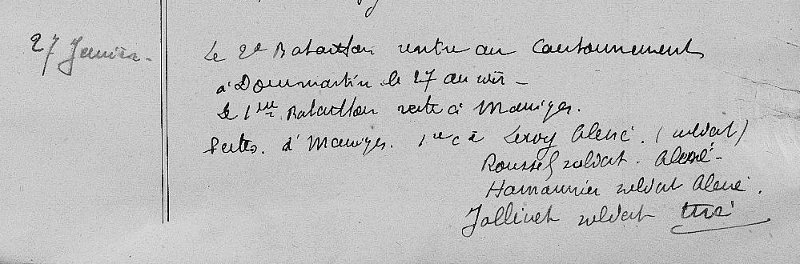 27 Janvier -
Le 2e Bataillon rentre au Cantonnement
à Dommartin le 27 au soir -
Le 1er Bataillon reste à Maurizes.
Pertes. à Maurizes. 1re Cie Leroy blessé. (soldat)
Roussel soldat. blessé -
Hamaunier soldat blessé.
Jollinet soldat tué